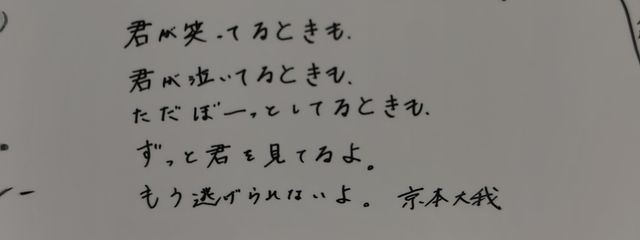 君が笑ってるときも、
君が泣いてるときも、
ただぼーっとしてるときも、
ずっと君を見てるよ。
もう逃げられないよ。 京本大我